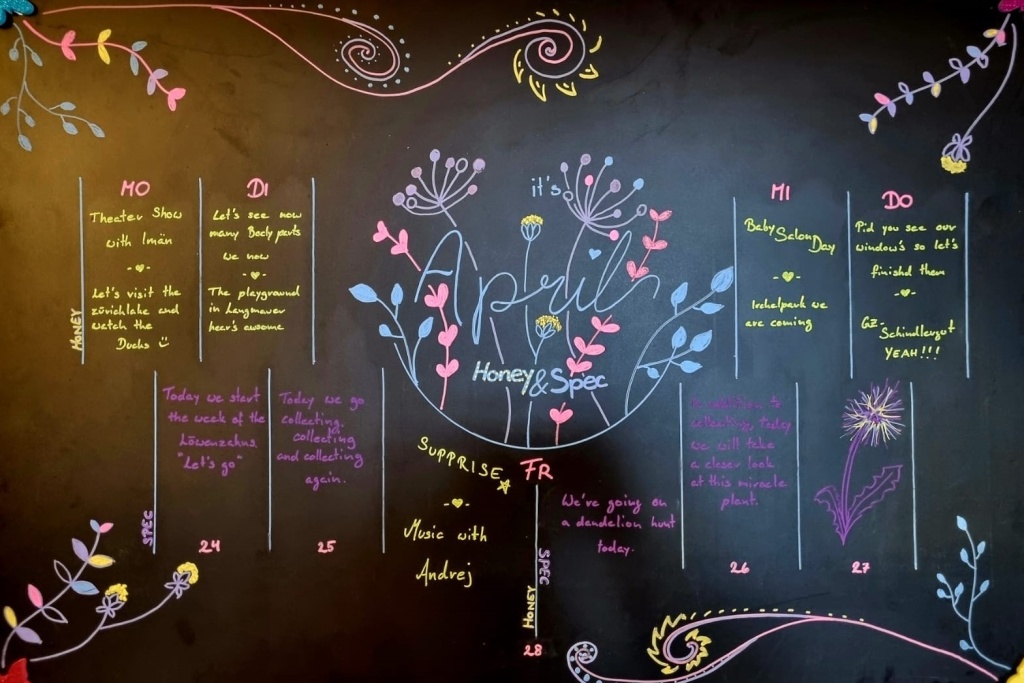 it's
April
Honey & Spec
MO
Theater Show
with Imän
Let's visit the
zürichlake and
watch the
Ducks
HONEY
DI
Let's see how
many Body parts
we now
The playground
in Langmauer
heer's awsome
MI
Baby Salon Day
Irchelpark we
are coming
DO
Did you see our
window's so let's
finishd them
GZ-
Schindlergut
YEAH!!!
SPEC
Today we start
the week of the
Löwenzahns
"Let's go"
24
Today we go
collecting,
collecting
and collecting
again.
25
SUPPRISE
Music with
Andrej
FR
We're going on
a dandelion hunt
today.
SPEC
HONEY
28
In addition to
collecting, today
we will take
a closer look
at this miracle
plant.
26
27